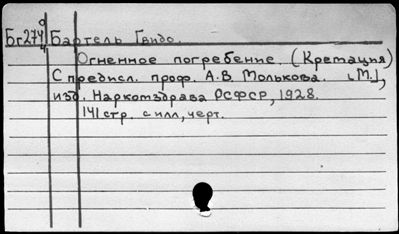 Бг274 Бартель Гвидо.
Огненное погребение. (Кремация)
С предисл. проф. А.В. Молькова. [М.],
изд. Наркомздрава РСФСР, 1928.
141 стр. с илл, черт.